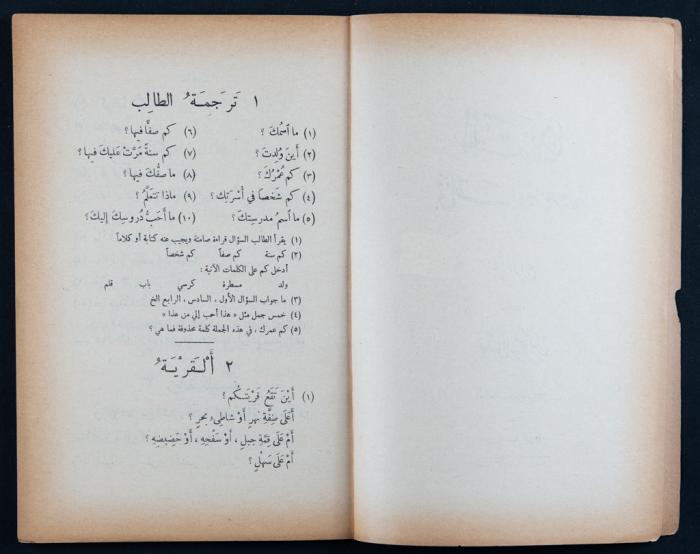 ١ تَرجَمِـَةُ الطالِب
(١) ما اَسمُكَ ؟ (٦) كم صفّاً فيها؟
(٢) أَينَ وُلِدتَ ؟ (٧) كم سنةً مَرَّتْ عَليكَ فيها؟
(٣) كم عُمْرُكَ ؟ (٨) ما صفُّكَ فيها؟
(٤) كم شَخصاً في أُسْرَتِك ؟ (٩) ماذا تتعلَّمُ ؟
(٥) ما اَسمُ مدرسِتكَ ؟ (١٠) ما أَحَبُّ دُروسِكَ إليكَ؟
(١) يقرأ الطالب السؤال قراءة صامتة ويجيب عنه كتابة أو كلاماً
(٢) كم سنة كم صفاً كم شخصاً
أدخل كم على الكلمات الآتية :
ولد مسطرة كرسي باب قلم
(٣) ما جواب السؤال الأول ، السادس ، الرابع الخ
(٤) خمس جمل مثل « هذا أحب إلي من هذا »
(٥) كم عمرك ، في هذه الجملة كلمة محذوفة فما هي ؟
٢ أَلْـقَرْيَـةُ
(١) أَيْنَ تَقَعُ قَرْيَتـُكُم ؟
أَعَلَى ضِفَّةِ نهرٍ أَوْ شاطىءِ بحرٍ ؟
أَمْ عَلَى قِمَّةِ جبلٍ ، أَوْ سَفْحِهِ ، أَوْ حَضِيضِهِ ؟
أَمْ عَلَى سَهْلٍ ؟